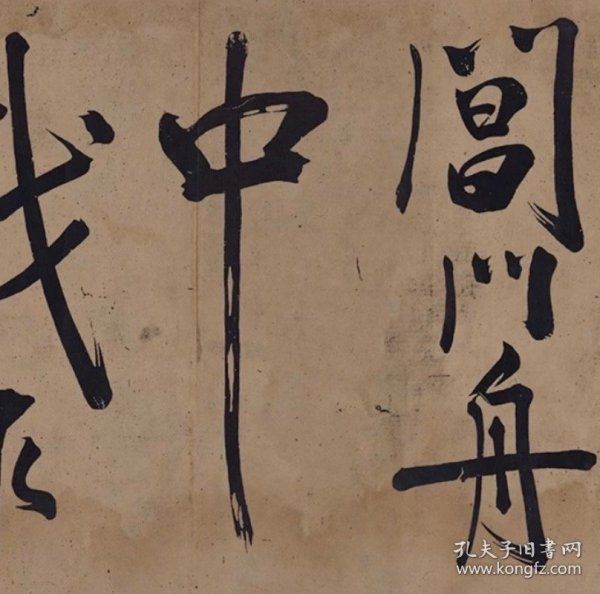 閶門舟
中
孔夫子旧書网
www.kongfz.com